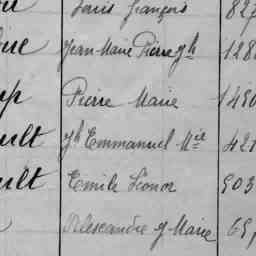 Louis François 827
Jean Marie Pierre Jh 128
Pierre Marie 1450
ult Jh Emmanuel Mie 421
ult Emile Léonor 503
Alexandre J Marie 65,